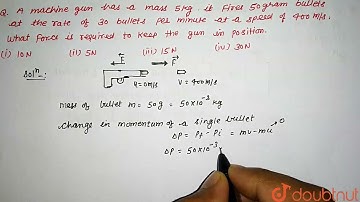 Q. A machine gun has a mass 5 kg. it fires 50 gram bullets
at the rate of 30 bullets per minute at a speed of 400 m/s.
What force is required to keep the gun in position.
(i) 10 N (ii) 5N (iii) 15 N (iv) 30N
Solⁿ:
F F
u=0m/s V=400m/s
mass of bullet m = 50g = 50×10⁻³ kg
change in momentum of a single bullet
ΔP = Pf - Pi = mv - mu 0
ΔP = 50×10⁻³
doubtnut